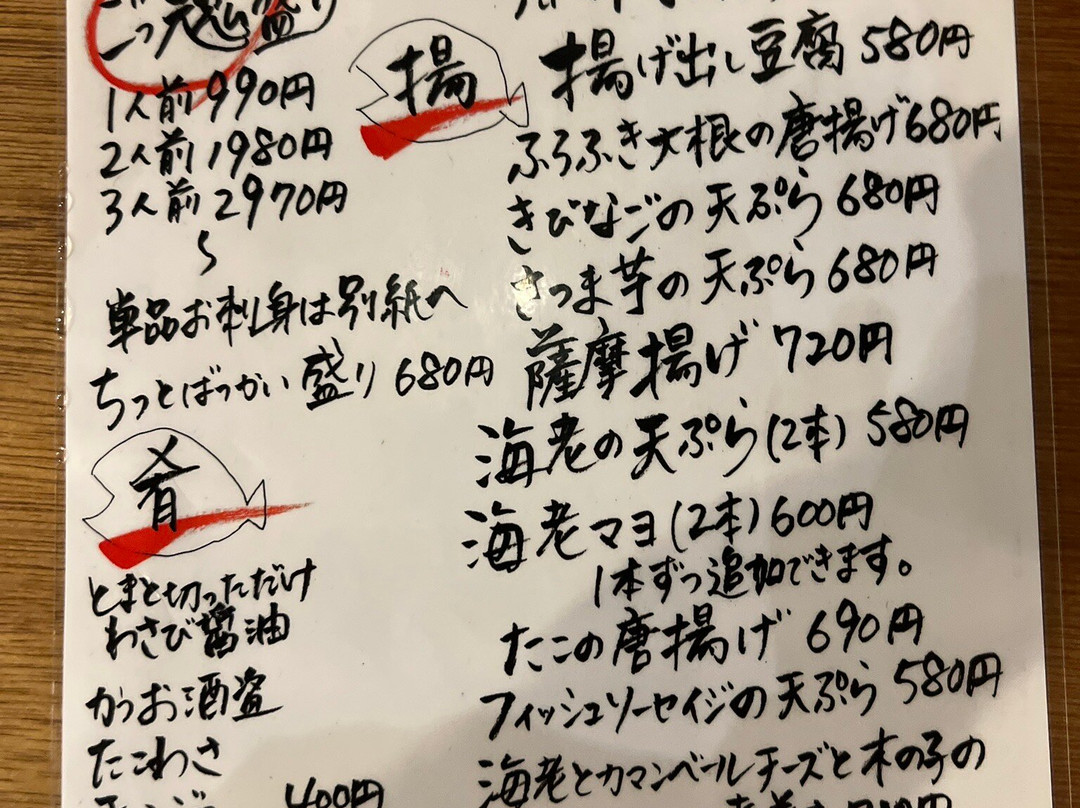 1人前 990円
2人前 1980円
3人前 2970円
〜
単品お刺身は別紙へ
ちっとばっかい盛り 680円
肴
とまと切っただけ
わさび醤油
かつお酒盗
たこわさ
400円
揚
揚げ出し豆腐 580円
ふろふき大根の唐揚げ 680円
きびなごの天ぷら 680円
さつま芋の天ぷら 680円
薩摩揚げ 720円
海老の天ぷら(2本) 580円
海老マヨ(2本) 600円
1本ずつ追加できます。
たこの唐揚げ 690円
フィッシュソーセイジの天ぷら 580円
海老とカマンベールチーズと木の子の